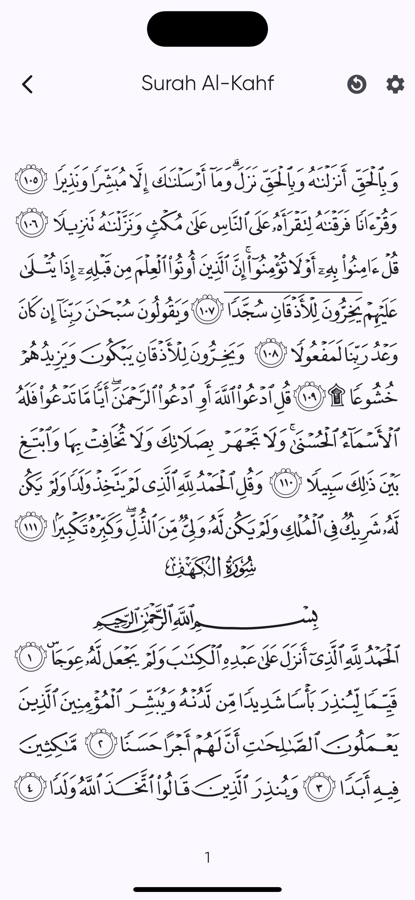 Surah Al-Kahf
وَبِالْحَقِّ أَنزَلْنَٰهُ وَبِالْحَقِّ نَزَلَ ۗ وَمَآ أَرْسَلْنَٰكَ إِلَّا مُبَشِّرًا وَنَذِيرًا ١٠٥
وَقُرْءَانًا فَرَقْنَٰهُ لِتَقْرَأَهُۥ عَلَى النَّاسِ عَلَىٰ مُكْثٍ وَنَزَّلْنَٰهُ تَنزِيلًا ١٠٦
قُلْ ءَامِنُوا۟ بِهِۦٓ أَوْ لَا تُؤْمِنُوٓا۟ ۚ إِنَّ الَّذِينَ أُوتُوا۟ الْعِلْمَ مِن قَبْلِهِۦٓ إِذَا يُتْلَىٰ
عَلَيْهِمْ يَخِرُّونَ لِلْأَذْقَانِ سُجَّدًا ١٠٧ وَيَقُولُونَ سُبْحَٰنَ رَبِّنَآ إِن كَانَ
وَعْدُ رَبِّنَا لَمَفْعُولًا ١٠٨ وَيَخِرُّونَ لِلْأَذْقَانِ يَبْكُونَ وَيَزِيدُهُمْ
خُشُوعًا ۩ ١٠٩ قُلِ ادْعُوا۟ اللَّهَ أَوِ ادْعُوا۟ الرَّحْمَٰنَ ۖ أَيًّا مَّا تَدْعُوا۟ فَلَهُ
الْأَسْمَآءُ الْحُسْنَىٰ ۚ وَلَا تَجْهَرْ بِصَلَاتِكَ وَلَا تُخَافِتْ بِهَا وَابْتَغِ
بَيْنَ ذَٰلِكَ سَبِيلًا ١١٠ وَقُلِ الْحَمْدُ لِلَّهِ الَّذِى لَمْ يَتَّخِذْ وَلَدًا وَلَمْ يَكُن
لَّهُۥ شَرِيكٌ فِى الْمُلْكِ وَلَمْ يَكُن لَّهُۥ وَلِىٌّ مِّنَ الذُّلِّ ۖ وَكَبِّرْهُ تَكْبِيرًۢا ١١١
سُورَةُ الْكَهْفِ
بِسْمِ اللَّهِ الرَّحْمَٰنِ الرَّحِيمِ
الْحَمْدُ لِلَّهِ الَّذِىٓ أَنزَلَ عَلَىٰ عَبْدِهِ الْكِتَٰبَ وَلَمْ يَجْعَل لَّهُۥ عِوَجَاۜ ١
قَيِّمًا لِّيُنذِرَ بَأْسًا شَدِيدًا مِّن لَّدُنْهُ وَيُبَشِّرَ الْمُؤْمِنِينَ الَّذِينَ
يَعْمَلُونَ الصَّٰلِحَٰتِ أَنَّ لَهُمْ أَجْرًا حَسَنًا ٢ مَّٰكِثِينَ
فِيهِ أَبَدًا ٣ وَيُنذِرَ الَّذِينَ قَالُوا۟ اتَّخَذَ اللَّهُ وَلَدًا ٤
1